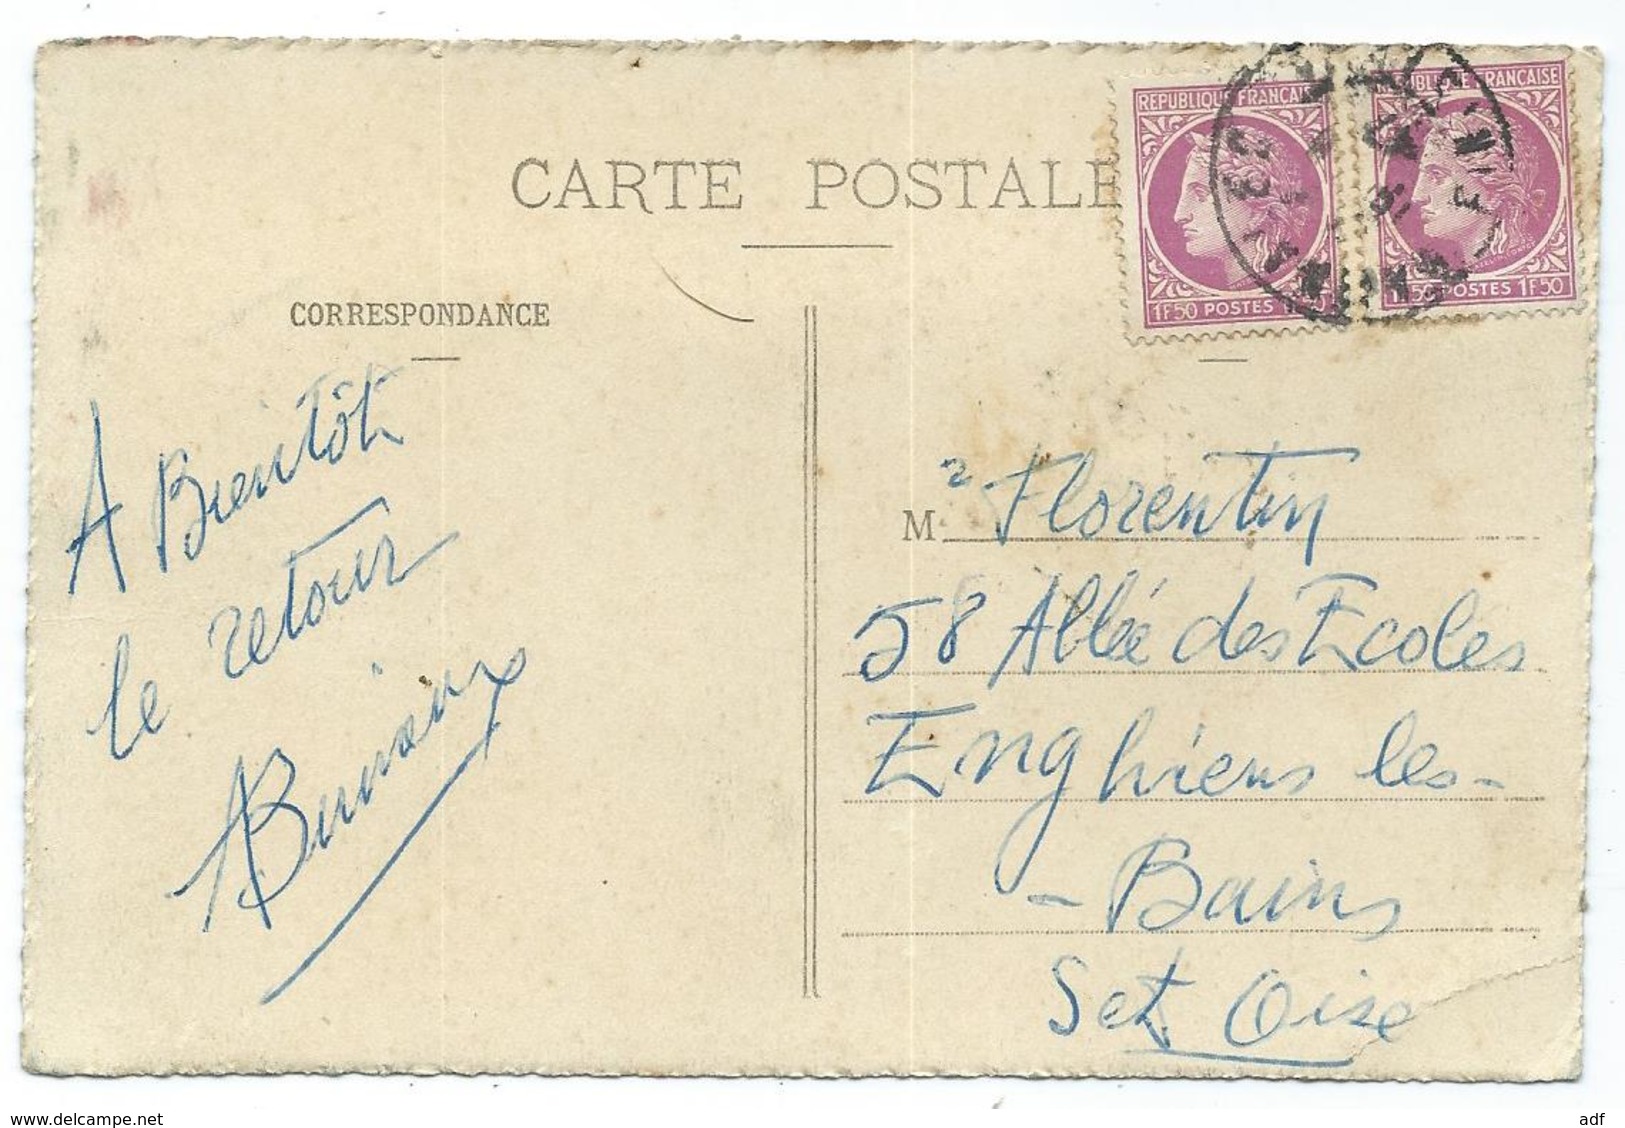 CARTE POSTALE
REPUBLIQUE FRANÇAISE
1F50 POSTES
REPUBLIQUE FRANÇAISE
1F50 POSTES 1F50
CORRESPONDANCE
A Bientôt
le retour
M. r Florentin
58 Allée des Ecoles
Enghiens les-
- Bains
S et Oise
www.delcampe.net
adf